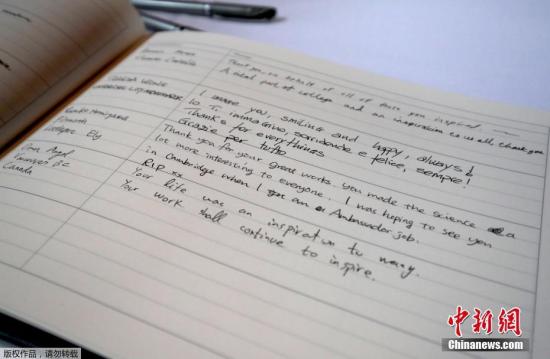 Thank you on behalf of all of those you inspired.
A great part of college and an inspiration to us all. thank you
I you, smiling and happy, always!
Io Ti immagino, sorridendo e felice, sempre!
Thanks for everythings
Grazie per tutto
Thank you for your great works. you made the science a
lot more interesting to everyone. I was hoping to see you
in Cambridge when I an Ambassador job.
R.I.P xx
Your life was an inspiration to many.
Your work shall continue to inspire.
Ely
Vancouver BC
Canada
中新网
Chinanews.com
版权作品，请勿转载